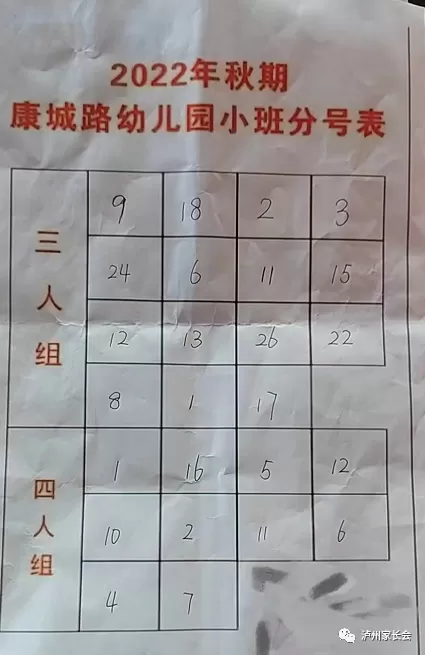 2022年秋期
康城路幼儿园小班分号表
三人组
9 18 2 3
24 6 11 15
12 13 26 22
8 1 17
四人组
1 16 5 12
10 2 11 6
4 7
泸州家长会